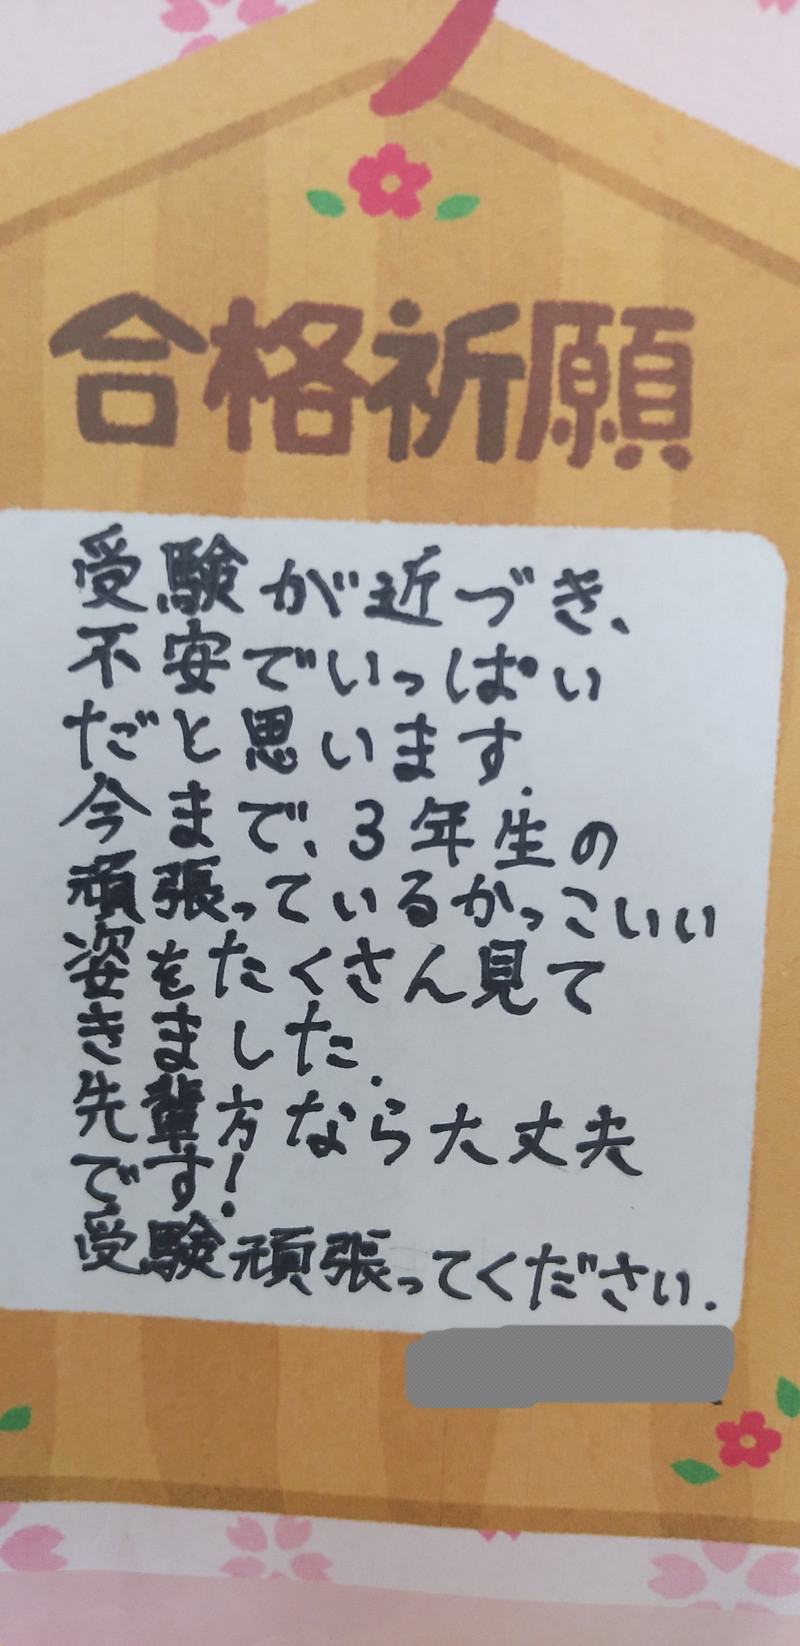 合格祈願
受験が近づき、
不安でいっぱい
だと思います.
今まで、3年生の
頑張っているかっこいい
姿をたくさん見て
きました.
先輩方なら大丈夫
です!
受験頑張ってください.